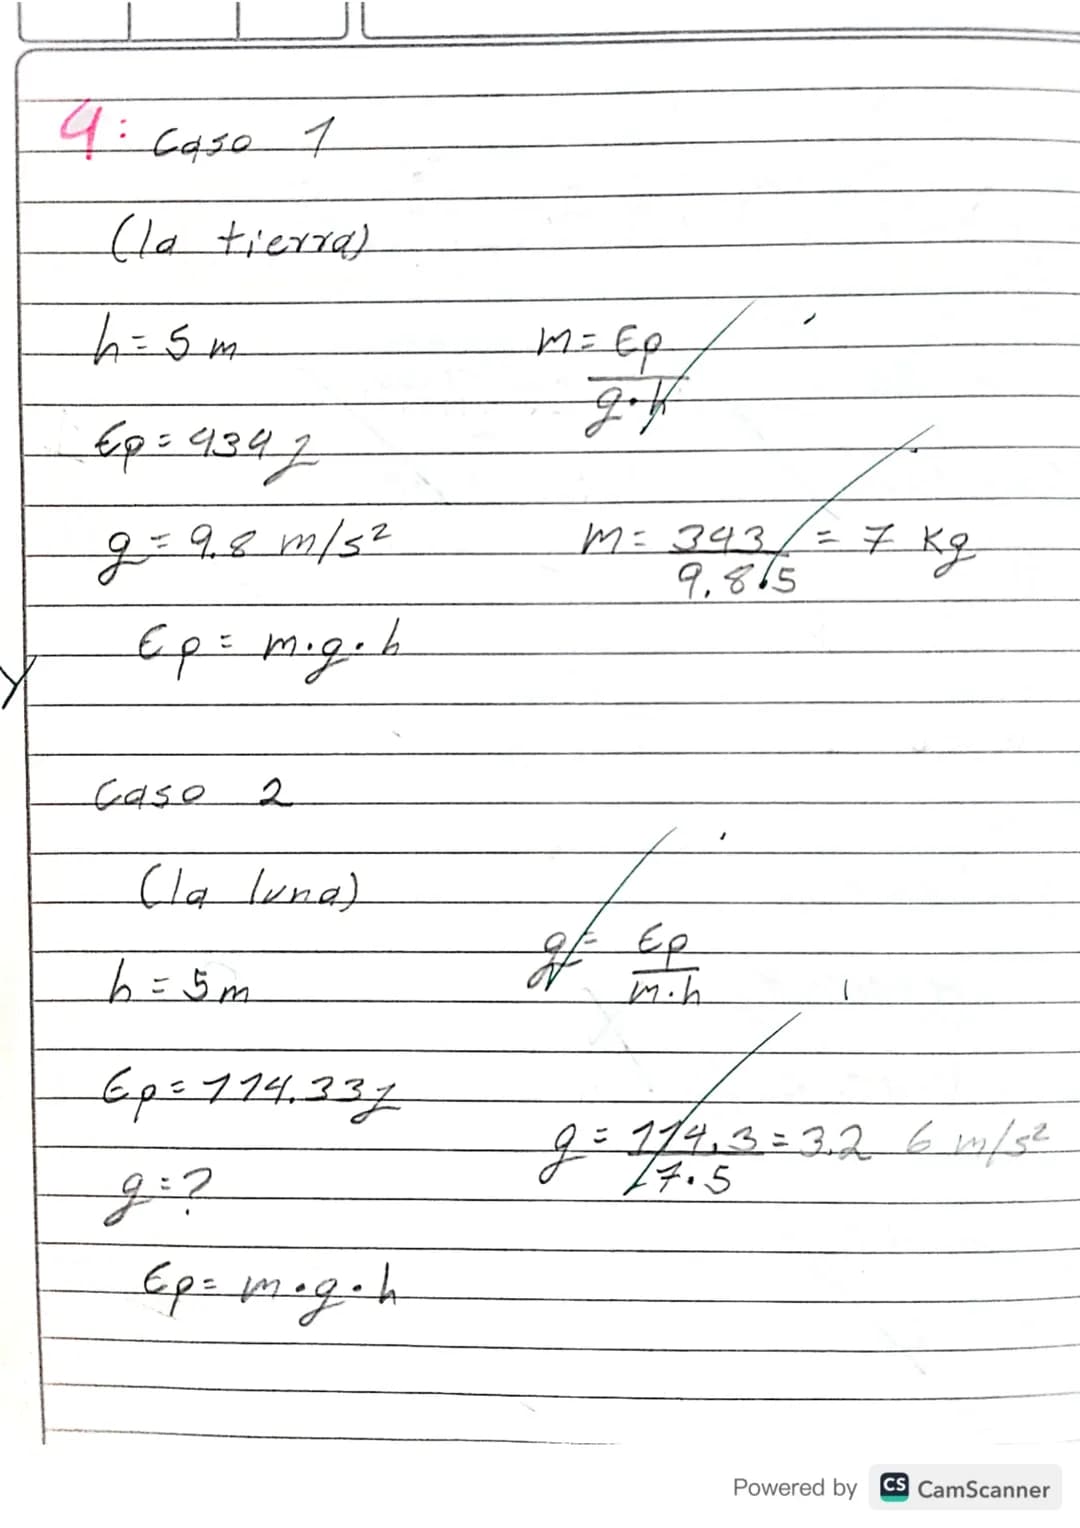 4: Caso 1
(la tierra)
h = 5 m
m = Ep
g·h
Ep = 434 J
g = 9.8 m/s²
m = 343 = 7 Kg
9,8·5
Ep = m·g·h
Caso 2
(la luna)
g = Ep
m·h
h = 5 m
Ep = 114.33 J
g = 114,3 = 3.2 6 m/s²
7·5
g = ?
Ep = m·g·h
Powered by CS CamScanner